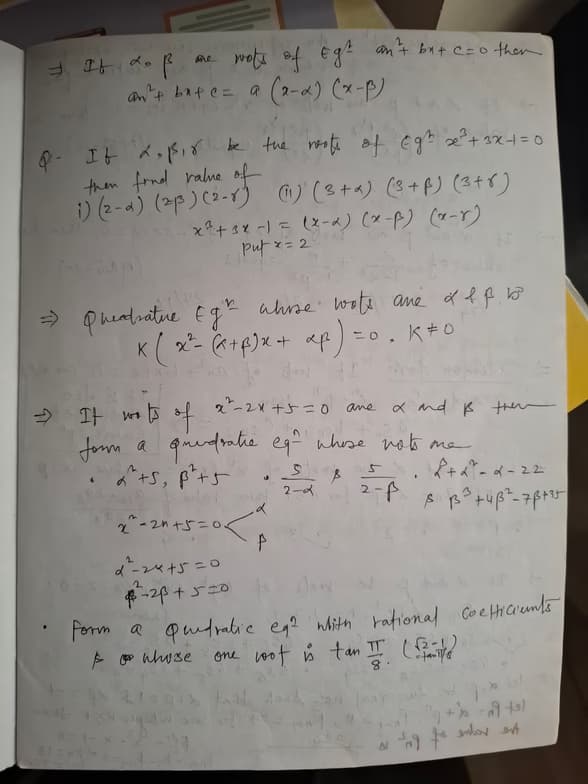 ⇒ If α, β are roots of Eqⁿ ax²+ bx + c = 0 then
ax²+ bx + c = a (x-α) (x-β)
Q- If α, β, γ be the roots of Eqⁿ x³+3x-1=0
then find value of
i) (2-α) (2β) (2-γ) (ii) (3+α) (3+β) (3+γ)
x³+3x-1 = (x-α) (x-β) (x-γ)
put x=2
⇒ Quadratic Eqⁿ whose roots are α & β is
K ( x²- (α+β)x + αβ ) = 0 , K ≠ 0
⇒ If roots of x²-2x+5=0 are α and β then
form a quadratic eqⁿ whose roots are
• α²+5, β²+5 • 5/2-α & 5/2-β • α³+α²-α-22
& β³+4β²-7β+35
x²-2x+5=0 < α
β
α²-2α+5=0
β²-2β+5=0
• Form a Quadratic eqⁿ with rational coefficients
& whose one root is tan π/8. (√2-1 = tan π/8)